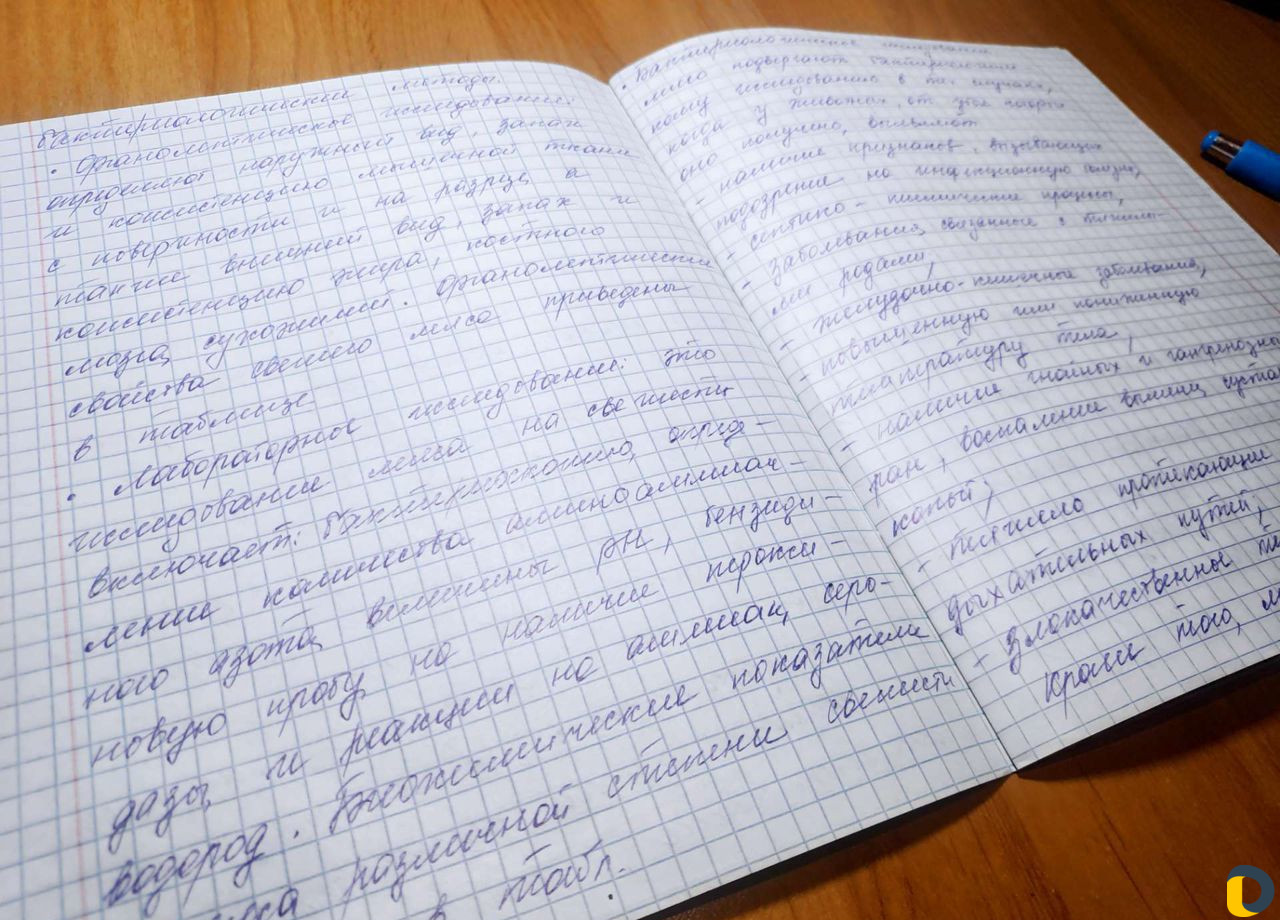 Бактериологические методы.
· Органолептическое исследование:
определяют наружный вид, запах
и консистенцию мышечной ткани
с поверхности и на разрезе, а
также внешний вид, запах и
консистенцию жира, костного
мозга, сухожилий. Органолептические
свойства свежего мяса приведены
в таблице
· Лабораторное исследование: это
исследование мяса на свежесть
включает: бактериоскопию, опреде-
ление количества аминоаммиач-
ного азота, величины рН, бензиди-
новую пробу на наличие перокси-
дазы, и реакции на аммиак, серо-
водород. Биохимические показатели
различной степени свежести
в табл.
· Бактериологическое исследование
мясо подвергают бактериологичес
кому исследованию в тех случаях,
когда у животных, от убоя которых
оно получено, выявляют
- наличие признаков, вызывающих
подозрение на инфекционную
- септико-пиемические процессы,
- заболевания, связанные с тяжелы-
ми родами,
- желудочно-кишечные заболевания,
- повышенную или пониженную
температуру тела,
- наличие гнойных и гангренозных
ран, воспаление вымени, сустав
копыт;
- тяжело протекающие
дыхательных путей;
- злокачественные
Кроме того,